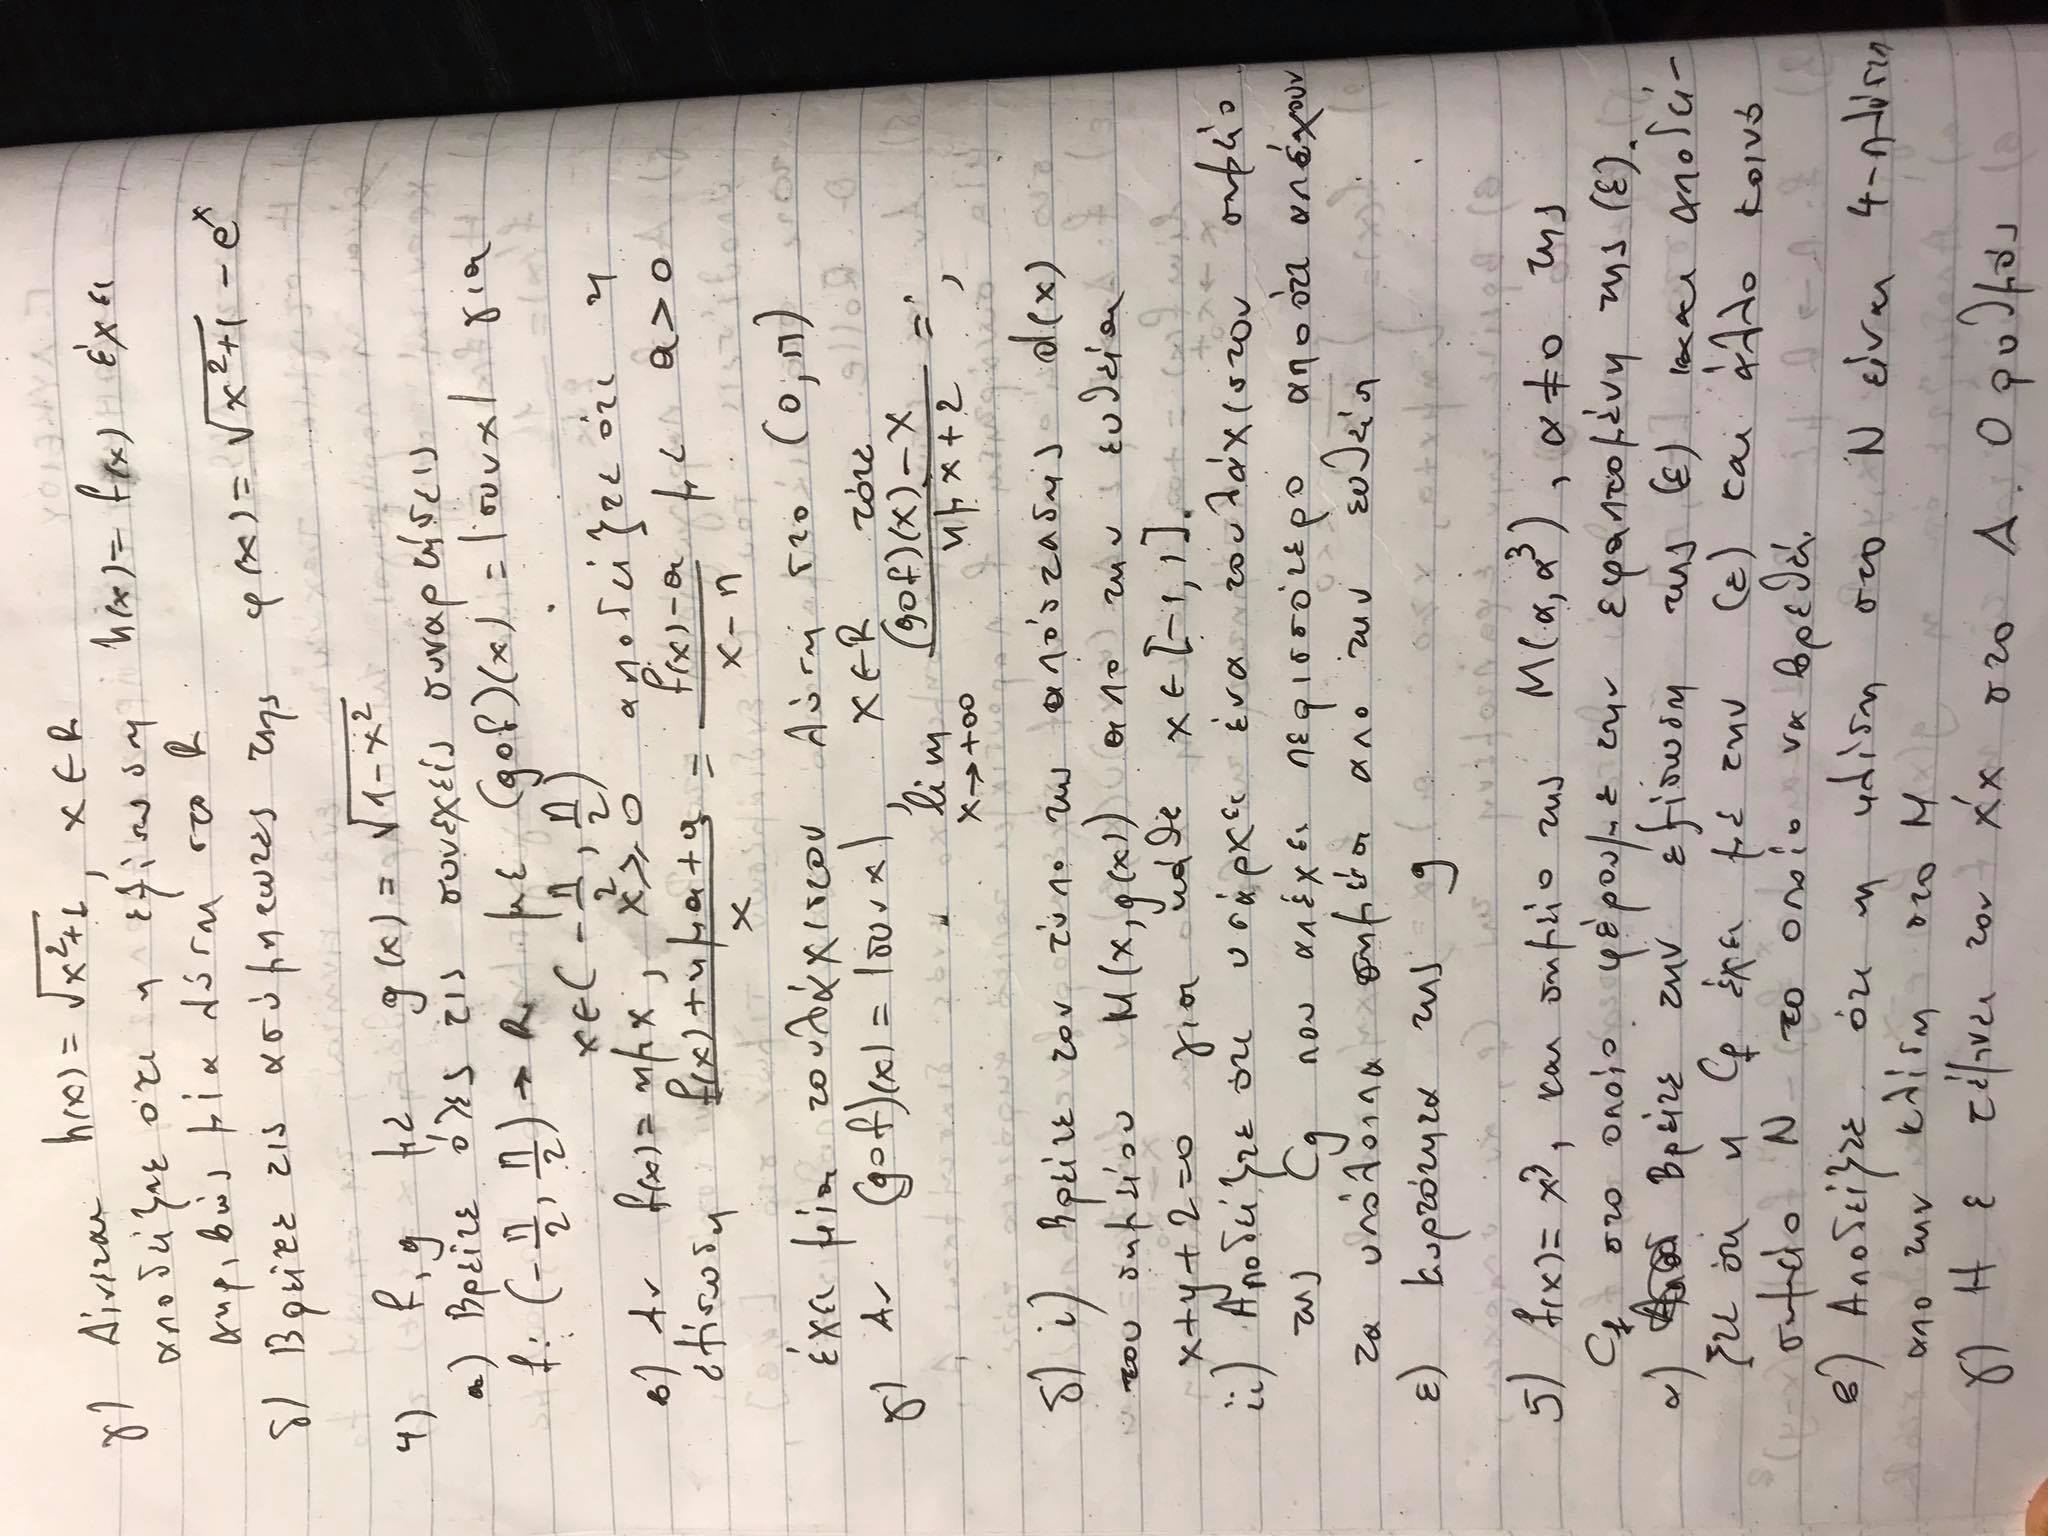 γ) Δίνεται h(x) = √x²+1, x∈R
αποδείξτε ότι η εξίσωση h(x) = f(x) έχει
ακριβώς μία λύση στο R
δ) Βρείτε τις ασύμπτωτες της φ(x) = √x²+1 - eˣ
4) f, g με g(x) = √1-x²
α) Βρείτε όλες τις συνεχείς συναρτήσεις
f: (-π/2, π/2) → R με (gof)(x) = |συνx| για
x∈(-π/2, π/2)
β) Αν f(x) = ημx, x≥0 αποδείξτε ότι η
εξίσωση f(x)+ημα+α/x = f(x)-α/x-π με α>0
έχει μία τουλάχιστον λύση στο (0, π)
γ) Αν (gof)(x) = |συνx|, x∈R τότε
lim x→+∞ (gof)(x)-x/ημx+2 = ,
δ) i) Βρείτε τον τύπο της απόστασης d(x)
του σημείου M(x, g(x)) απο την ευθεία
x+y+2=0 για κάθε x∈[-1,1].
ii) Αποδείξτε ότι υπάρχει ένα τουλάχιστον σημείο
της Cg που απέχει περισσότερο από ότι απέχουν
τα υπόλοιπα σημεία απο την ευθεία
ε) κυρτότητα της g
5) f(x) = x³, και σημείο της M(α, α³), α≠0 της
Cf στο οποίο φέρουμε την εφαπτομένη της (ε).
α) Βρείτε την εξίσωση της (ε) και αποδεί-
ξτε ότι η Cf έχει με την (ε) και άλλο κοινό
σημείο N το οποίο να βρεθεί.
β) Αποδείξτε ότι η κλίση στο N είναι 4-πλάσια
απο την κλίση στο M
γ) Η ε τέμνει τον x'x στο A. Ο ρυθμός